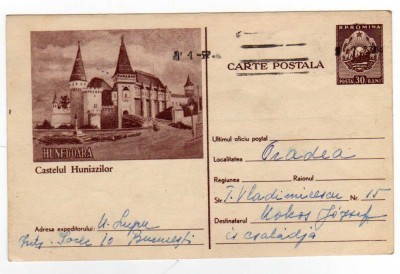 R.P.ROMINA
CARTE POSTALA
POSTA 30 BANI
HUNEDOARA
Castelul Huniazilor
Ultimul oficiu poştal
Localitatea Oradea
Regiunea Raionul
Str. T. Vladimirescu Nr. 15
Destinatarul Mokos József
és családja
Adresa expeditorului: M. Lupu
10 Bucureşti